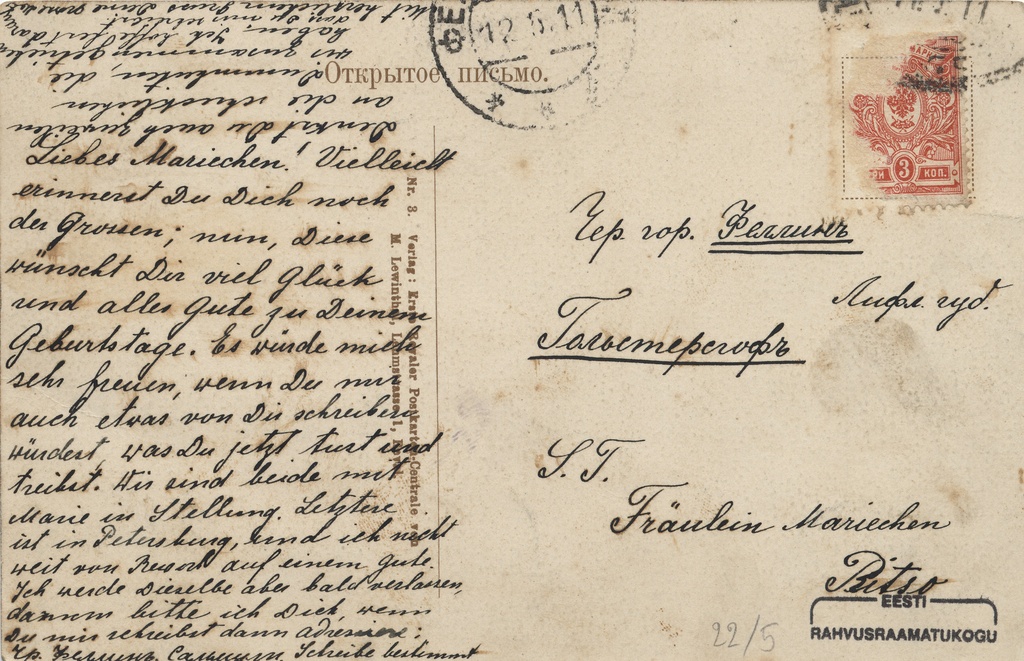 ФЕ
12.5.11
Открытое письмо.
Liebes Mariechen! Vielleicht
erinnerst Du Dich noch
der Grossen; nun, diese
wünscht Dir viel Glück
und alles Gute zu Deinem
Geburtstage. Es würde mich
sehr freuen, wenn Du mir
auch etwas von Dir schreiben
würdest, was Du jetzt tust und
treibst. Wir sind beide mit
Marie in Stellung. Letztere
ist in Petersburg, und ich nicht
weit von auf einem Gute.
Ich werde dieselbe aber bald verlassen,
darum bitte ich Dich, wenn
Du mir schreibst dann adressiere:
Чр. Феллинъ Schreibe bestimmt
Denkst Du auch zuweilen
an die schrecklichen
Dummheiten, die
wir zusammen getrieben
haben. Ich hoffe fest darauf
dass Du mir
Mit herzlichem Gruss Deine
Nr. 3. Verlag: Revaler Postkarten-Centrale von
M. Lewinthal,
3 КОП.
Чер. гор. Феллинъ
Лифл. губ.
Гольстерсгофъ
S. T.
Fräulein Mariechen
Pitso
22/5
EESTI
RAHVUSRAAMATUKOGU